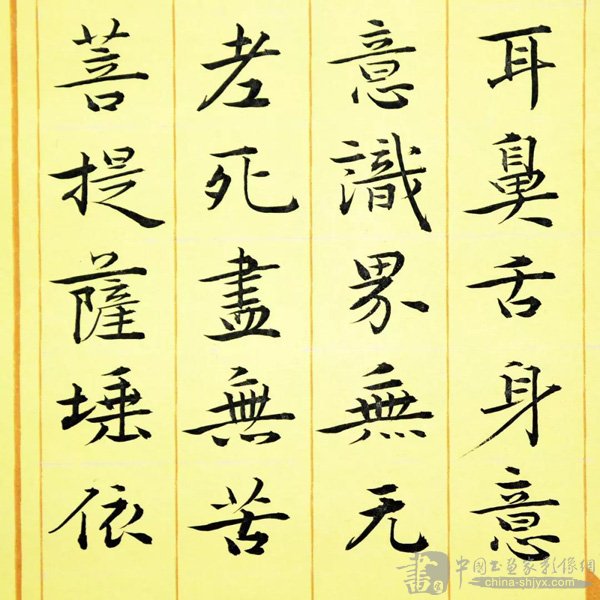 耳鼻舌身意
意識界無无
老死盡無苦
菩提薩埵依
書 中国书画家影像網
china-shjyx.com